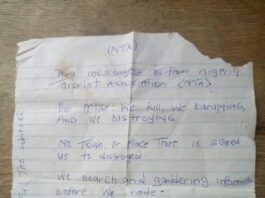 (NTA)
This message is from nigeria
Terorist Association (NTA)
Our motor: We kill, We kidnapping
AND We DISTROYING
NO TOWN, or PLACE THAT is scared
us TO distroyed
We search and gathering information
before We raide.
THE